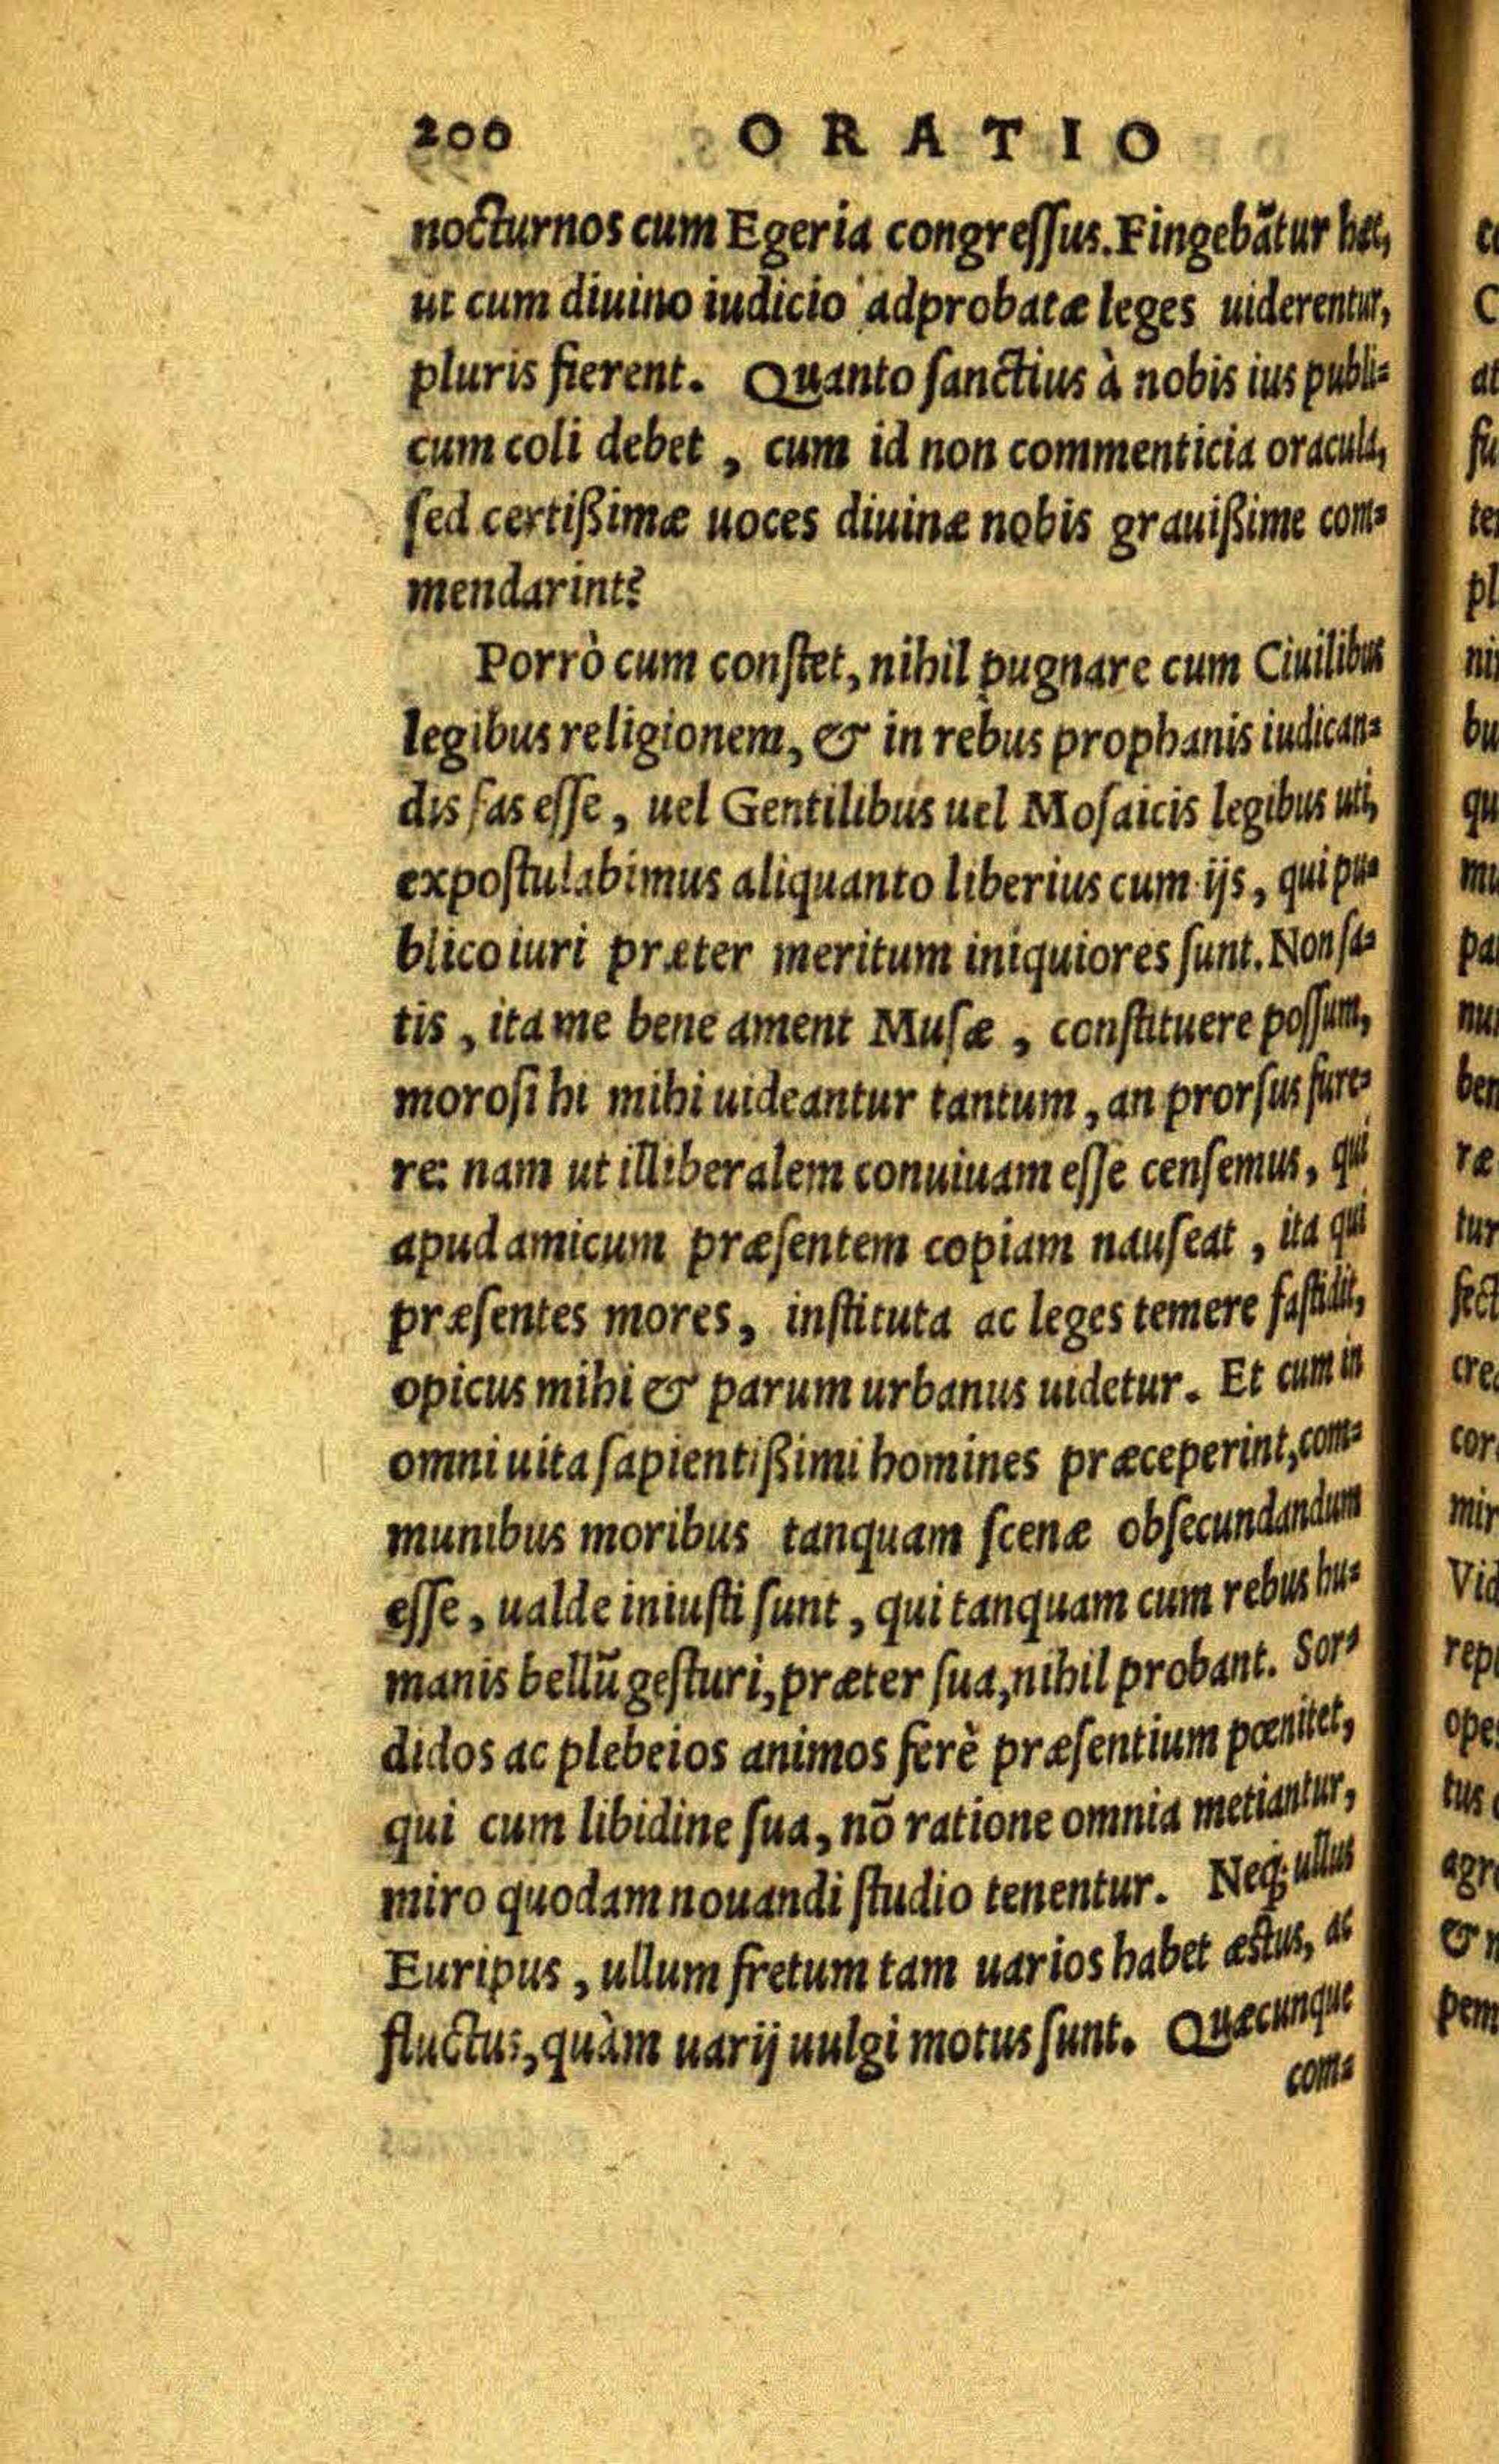 200 ORATIO
nocturnos cum Egeria congreſſus. Fingebãtur hæc,
ut cum diuino iudicio adprobatæ leges uiderentur,
pluris fierent. Quanto ſanctius à nobis ius publi-
cum coli debet, cum id non commenticia oracula,
ſed certißimæ uoces diuinæ nobis grauißime com-
mendarint?
Porrò cum conſtet, nihil pugnare cum Ciuilibus
legibus religionem, & in rebus prophanis iudican-
dis fas eſſe, uel Gentilibus uel Moſaicis legibus uti,
expoſtulabimus aliquanto liberius cum ijs, qui pu-
blico iuri præter meritum iniquiores ſunt. Non ſa-
tis, ita me bene ament Muſæ, conſtituere poſſum,
moroſi hi mihi uideantur tantum, an prorſus fure-
re: nam ut illiberalem conuiuam eſſe cenſemus, qui
apud amicum præſentem copiam nauſeat, ita qui
præſentes mores, inſtituta ac leges temere faſtidit,
opicus mihi & parum urbanus uidetur. Et cum in
omni uita ſapientißimi homines præceperint, com-
munibus moribus tanquam ſcenæ obſecundandum
eſſe, ualde iniuſti ſunt, qui tanquam cum rebus hu-
manis bellũ geſturi, præter ſua, nihil probant. Sor-
didos ac plebeios animos ferè præſentium pœnitet,
qui cum libidine ſua, nõ ratione omnia metiantur,
miro quodam nouandi ſtudio tenentur. Neq; ullus
Euripus, ullum fretum tam uarios habet æſtus, ac
fluctus, quàm uarij uulgi motus ſunt. Quæcunque
com-